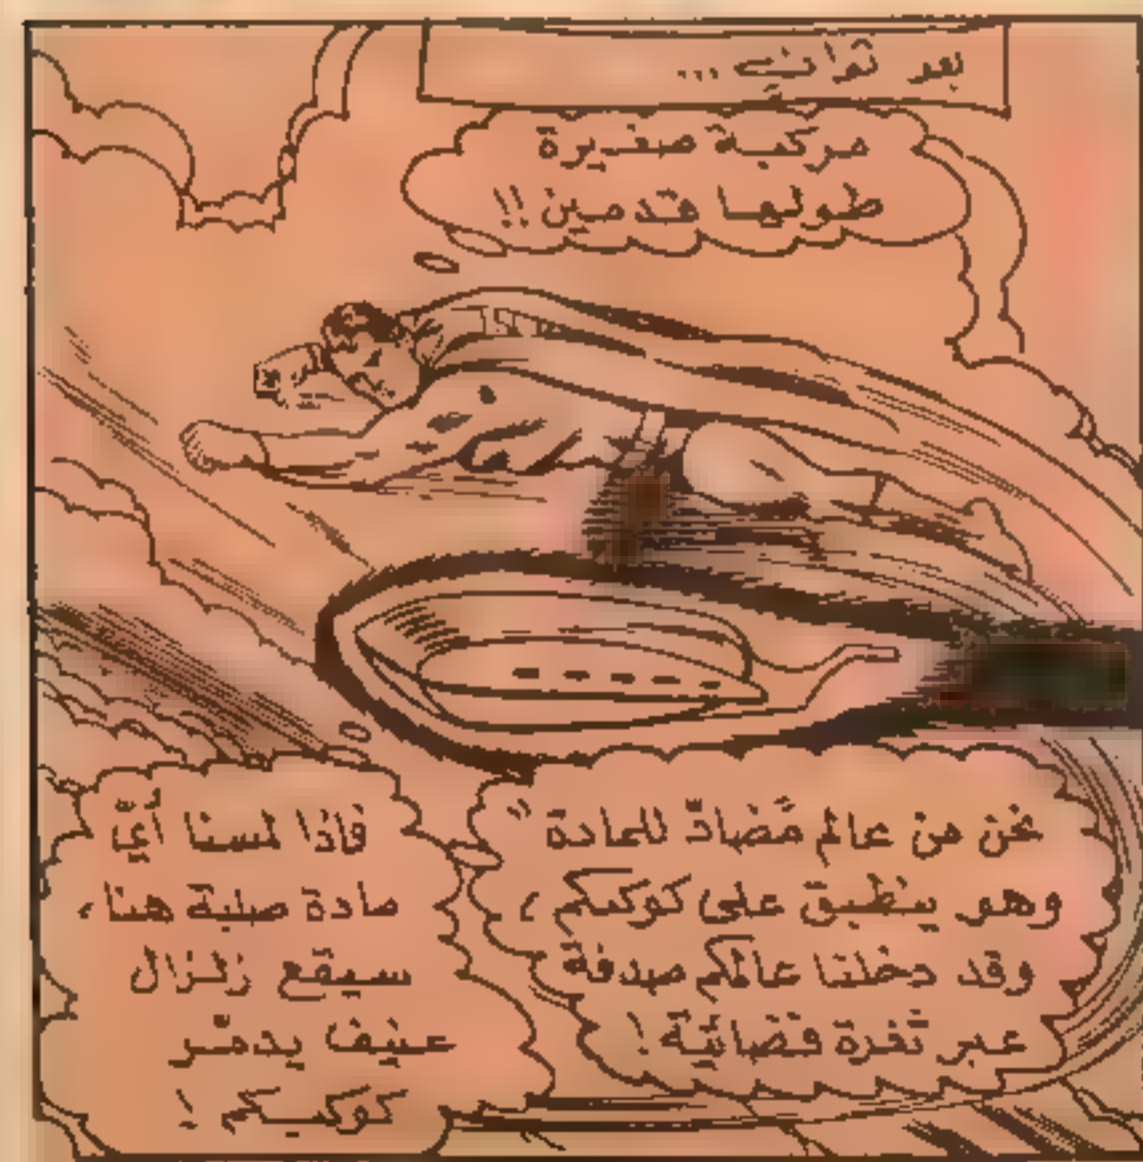 بعد ثوانٍ ...
مركبة صغيرة
طولها قدمين !!
نحن من عالم مُضادّ للمادة "
وهو ينطبق على كوكبكم ،
وقد دخلنا عالمكم صدفة
عبر ثغرة فضائية !
فإذا لمسنا أيّ
مادة صلبة هنا ،
سيقع زلزال
عنيف يدمّر
كوكبكم !